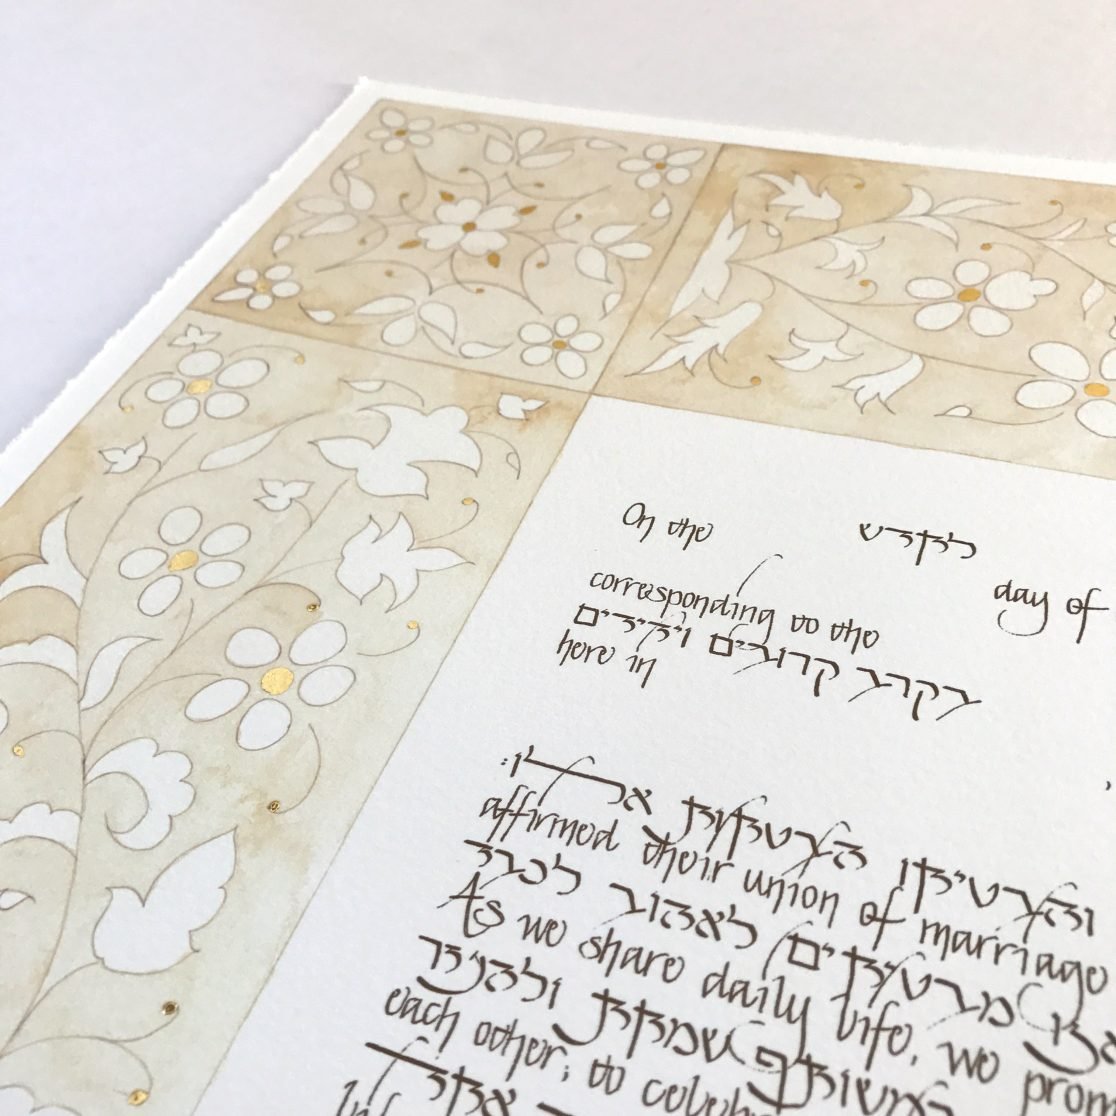 On the
day of
corresponding to the
בקרב קרובים וידידים
here in
והבטיחו הבטחות אלו:
affirmed their union of marriage
אנו מבטיחים לאהוב לכבד
As we share daily life, we prom
each other; to celeb